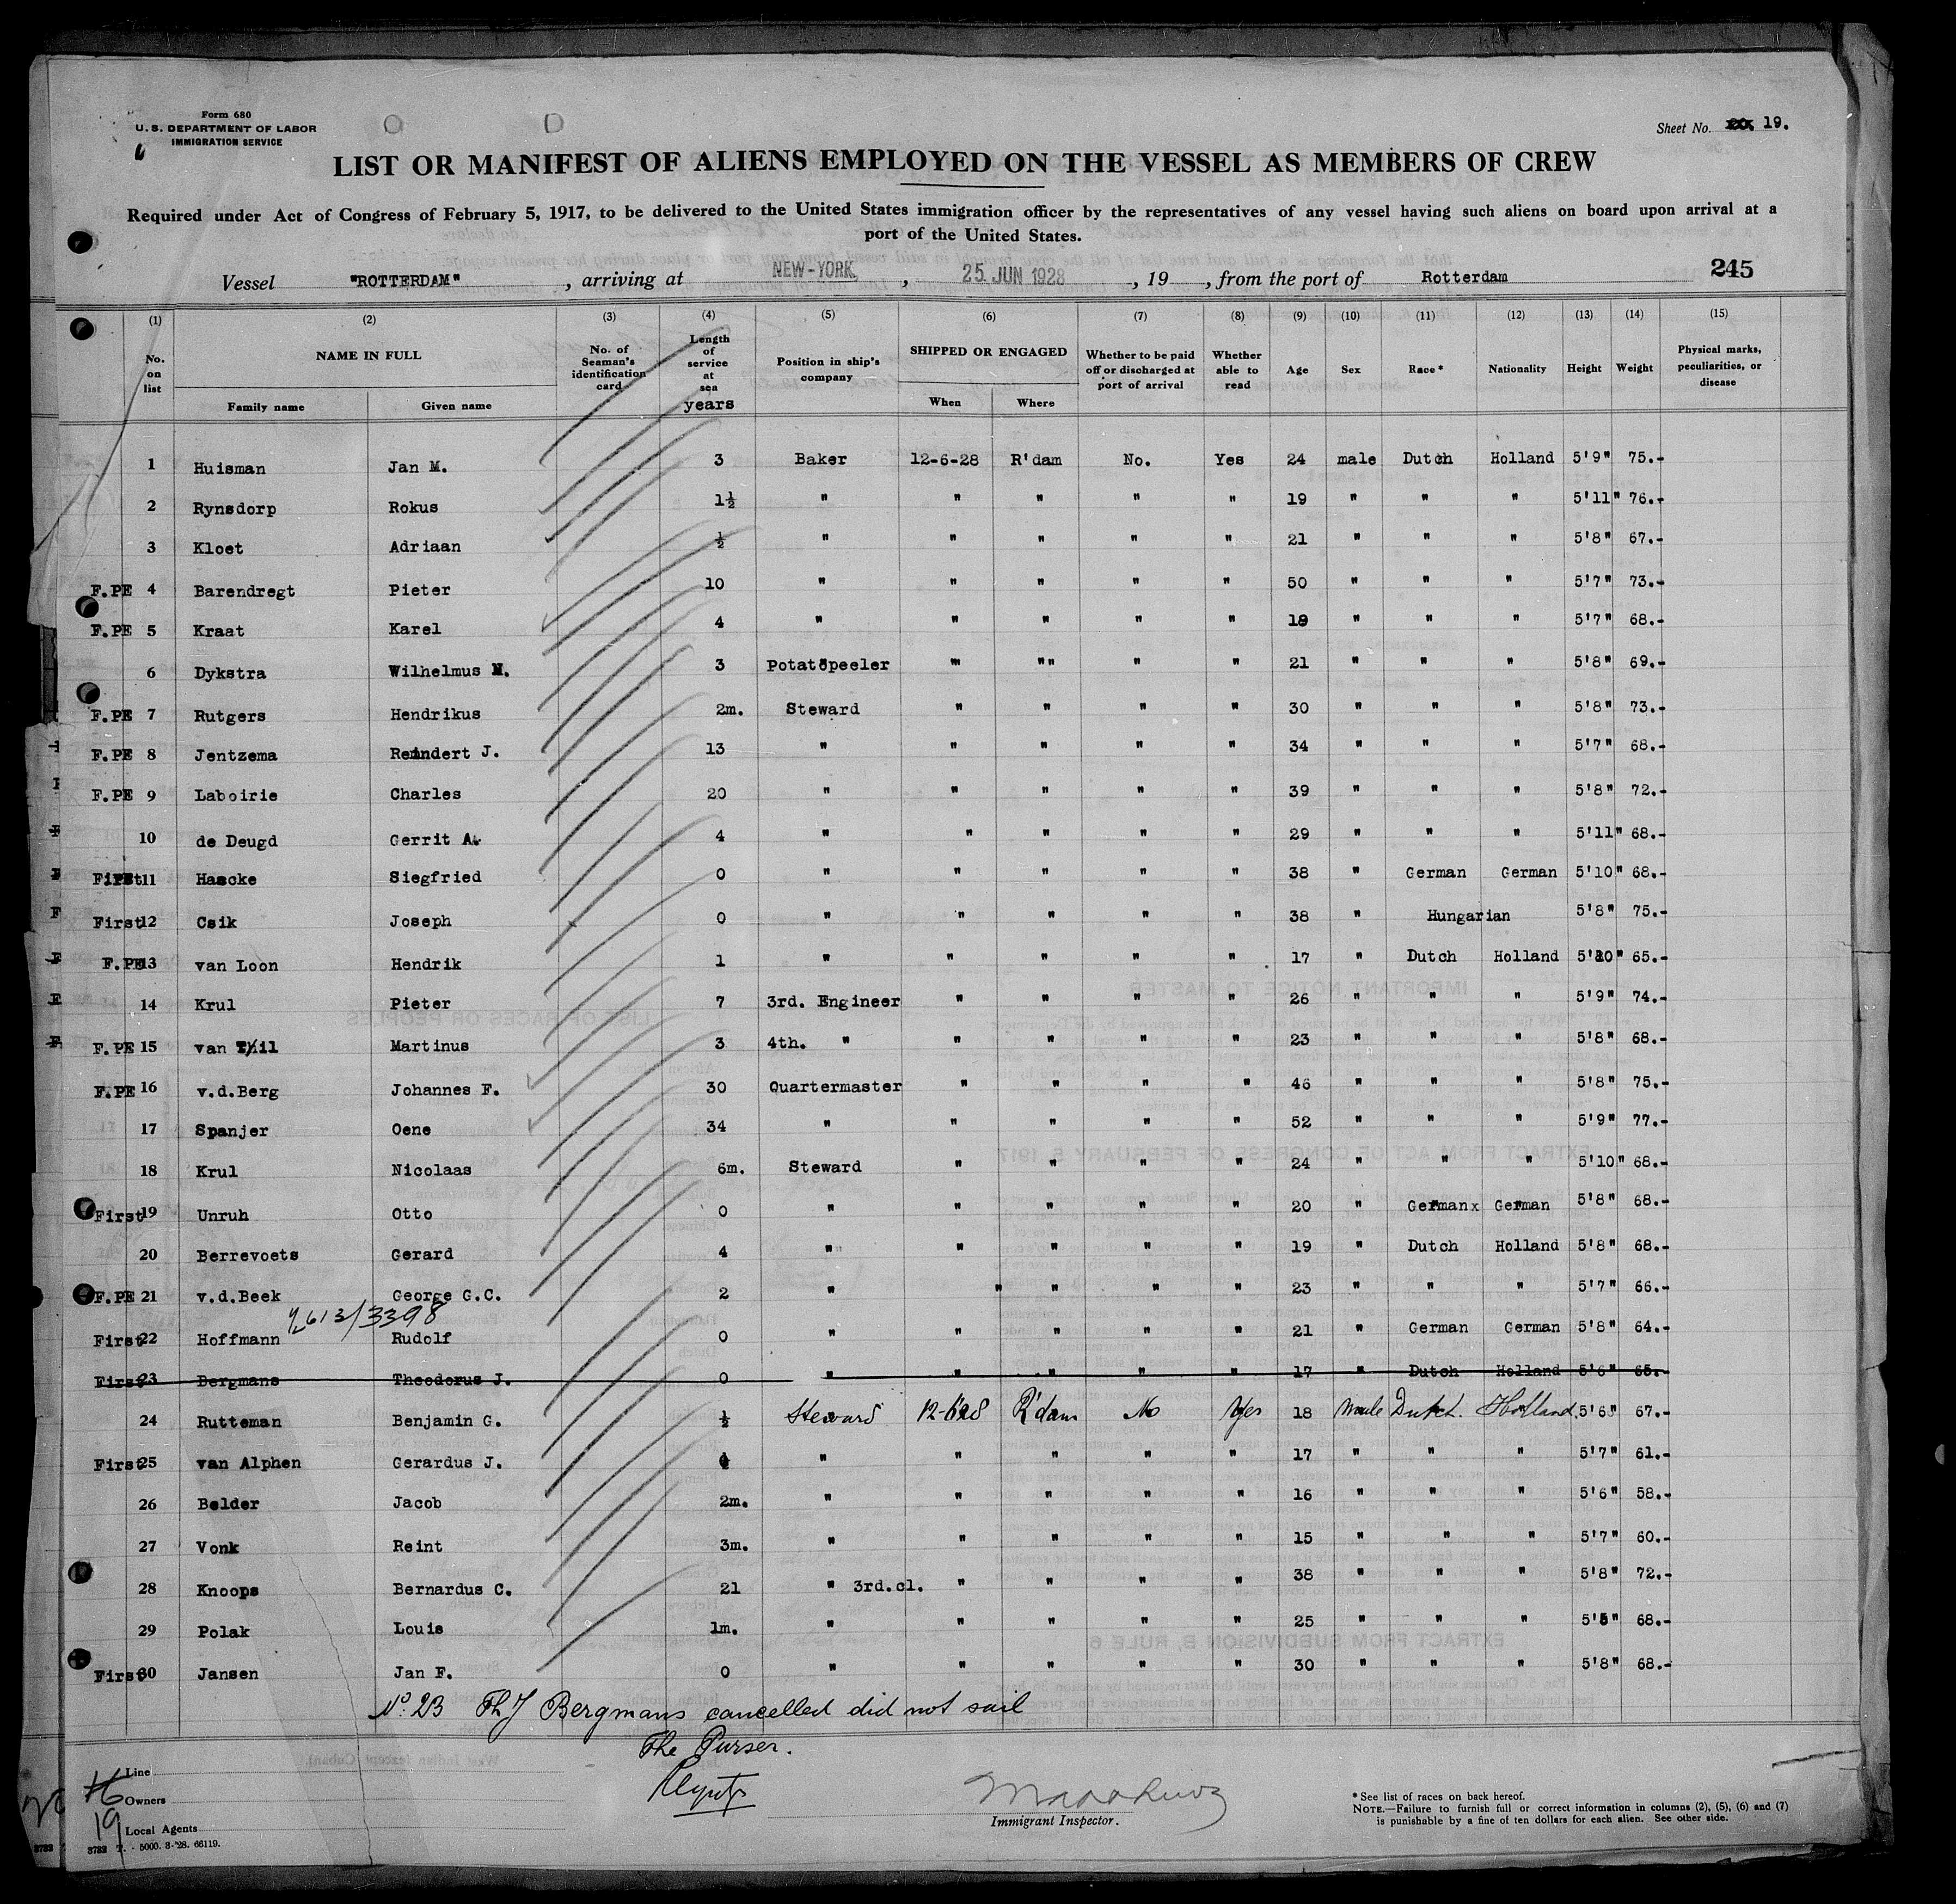 Form 680
U. S. DEPARTMENT OF LABOR
IMMIGRATION SERVICE
Sheet No. 19.
LIST OR MANIFEST OF ALIENS EMPLOYED ON THE VESSEL AS MEMBERS OF CREW
Required under Act of Congress of February 5, 1917, to be delivered to the United States immigration officer by the representatives of any vessel having such aliens on board upon arrival at a
port of the United States.
Vessel "ROTTERDAM", arriving at NEW-YORK, 25 JUN 1928, 19 , from the port of Rotterdam 245
(1) (2) (3) (4) (5) (6) (7) (8) (9) (10) (11) (12) (13) (14) (15)
No. on list NAME IN FULL Family name Given name No. of Seaman's identification card Length of service at sea years Position in ship's company SHIPPED OR ENGAGED When Where Whether to be paid off or discharged at port of arrival Whether able to read Age Sex Race* Nationality Height Weight Physical marks, peculiarities, or disease
1 Huisman Jan M. 3 Baker 12-6-28 R'dam No. Yes 24 male Dutch Holland 5'9" 75.-
2 Rynsdorp Rokus 1½ " " " " " 19 " " " 5'11" 76.-
3 Kloet Adriaan ½ " " " " " 21 " " " 5'8" 67.-
F.PE 4 Barendregt Pieter 10 " " " " " 50 " " " 5'7" 73.-
F.PE 5 Kraat Karel 4 " " " " " 19 " " " 5'7" 68.-
6 Dykstra Wilhelmus M. 3 Potatopeeler " "" " " 21 " " " 5'8" 69.-
F.PE 7 Rutgers Hendrikus 2m. Steward " " " " 30 " " " 5'8" 73.-
F.PE 8 Jentzema Reindert J. 13 " " " " " 34 " " " 5'7" 68.-
F.PE 9 Laboirie Charles 20 " " " " " 39 " " " 5'8" 72.-
10 de Deugd Gerrit A. 4 " " " " " 29 " " " 5'11" 68.-
First 11 Haecke Siegfried 0 " " " " " 38 " German German 5'10" 68.-
First 12 Csik Joseph 0 " " " " " 38 " Hungarian 5'8" 75.-
F.PE 13 van Loon Hendrik 1 " " " " " 17 " Dutch Holland 5'10" 65.-
14 Krul Pieter 7 3rd. Engineer " " " " 26 " " " 5'9" 74.-
F.PE 15 van Thil Martinus 3 4th. " " " " " 23 " " " 5'8" 68.-
F.PE 16 v.d.Berg Johannes F. 30 Quartermaster " " " " 46 " " " 5'8" 75.-
17 Spanjer Oene 34 " " " " " 52 " " " 5'9" 77.-
18 Krul Nicolaas 6m. Steward " " " " 24 " " " 5'10" 68.-
First 19 Unruh Otto 0 " " " " " 20 " Germanx German 5'8" 68.-
20 Berrevoets Gerard 4 " " " " " 19 " Dutch Holland 5'8" 68.-
F.PE 21 v.d.Beek George G.C. 2 " " " " " 23 " " " 5'7" 66.-
First 22 Hoffmann Rudolf 0 " " " " " 21 " German German 5'8" 64.-
First 23 Bergmans Theodorus J. 0 " " " " " 17 " Dutch Holland 5'6" 65.-
24 Rutteman Benjamin G. ½ Steward 12-6-28 R'dam No Yes 18 Male Dutch. Holland. 5'6" 67.-
First 25 van Alphen Gerardus J. " " " " " 17 " " " 5'7" 61.-
26 Belder Jacob 2m. " " " " " 16 " " " 5'6" 58.-
27 Vonk Reint 3m. " " " " " 15 " " " 5'7" 60.-
28 Knoops Bernardus C. 21 " 3rd.cl. " " " " 38 " " " 5'8" 72.-
29 Polak Louis 1m. " " " " " 25 " " " 5'5" 68.-
First 30 Jansen Jan F. 0 " " " " " 30 " " " 5'8" 68.-
No. 23 Th J Bergmans cancelled did not sail
The Purser.
Line
Owners
19
Local Agents
3732 T. - 5000. 3-'28. 66119.
Immigrant Inspector.
* See list of races on back hereof.
NOTE.—Failure to furnish full or correct information in columns (2), (5), (6) and (7)
is punishable by a fine of ten dollars for each alien. See other side.